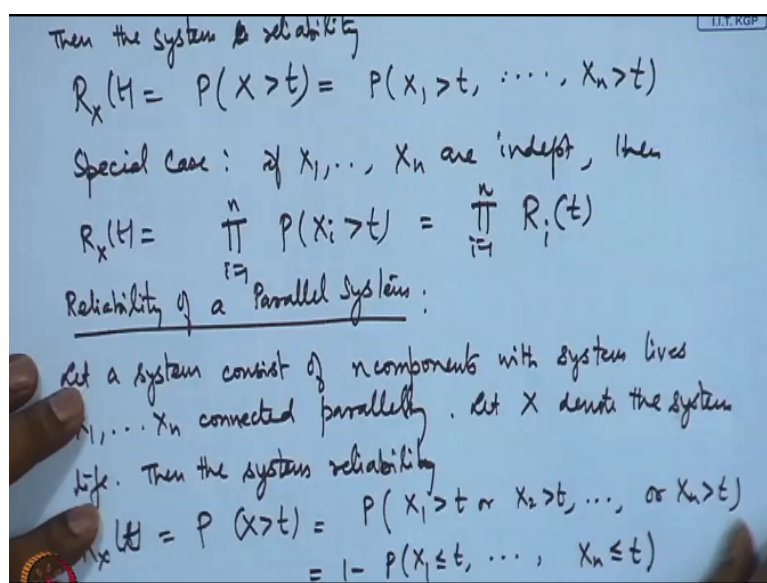 I.I.T. KGP
Then the system reliability
R_X(t) = P(X > t) = P(X_1 > t, ...., X_n > t)
Special Case: if X_1, .., X_n are indept, then
R_X(t) = ∏_{i=1}^{n} P(X_i > t) = ∏_{i=1}^{n} R_i(t)
Reliability of a Parallel System:
Let a system consist of n components with system lives
X_1, ... X_n connected parallelly. Let X denote the system
life. Then the system reliability
R_X(t) = P(X > t) = P(X_1 > t or X_2 > t, ..., or X_n > t)
= 1 - P(X_1 ≤ t, ..., X_n ≤ t)